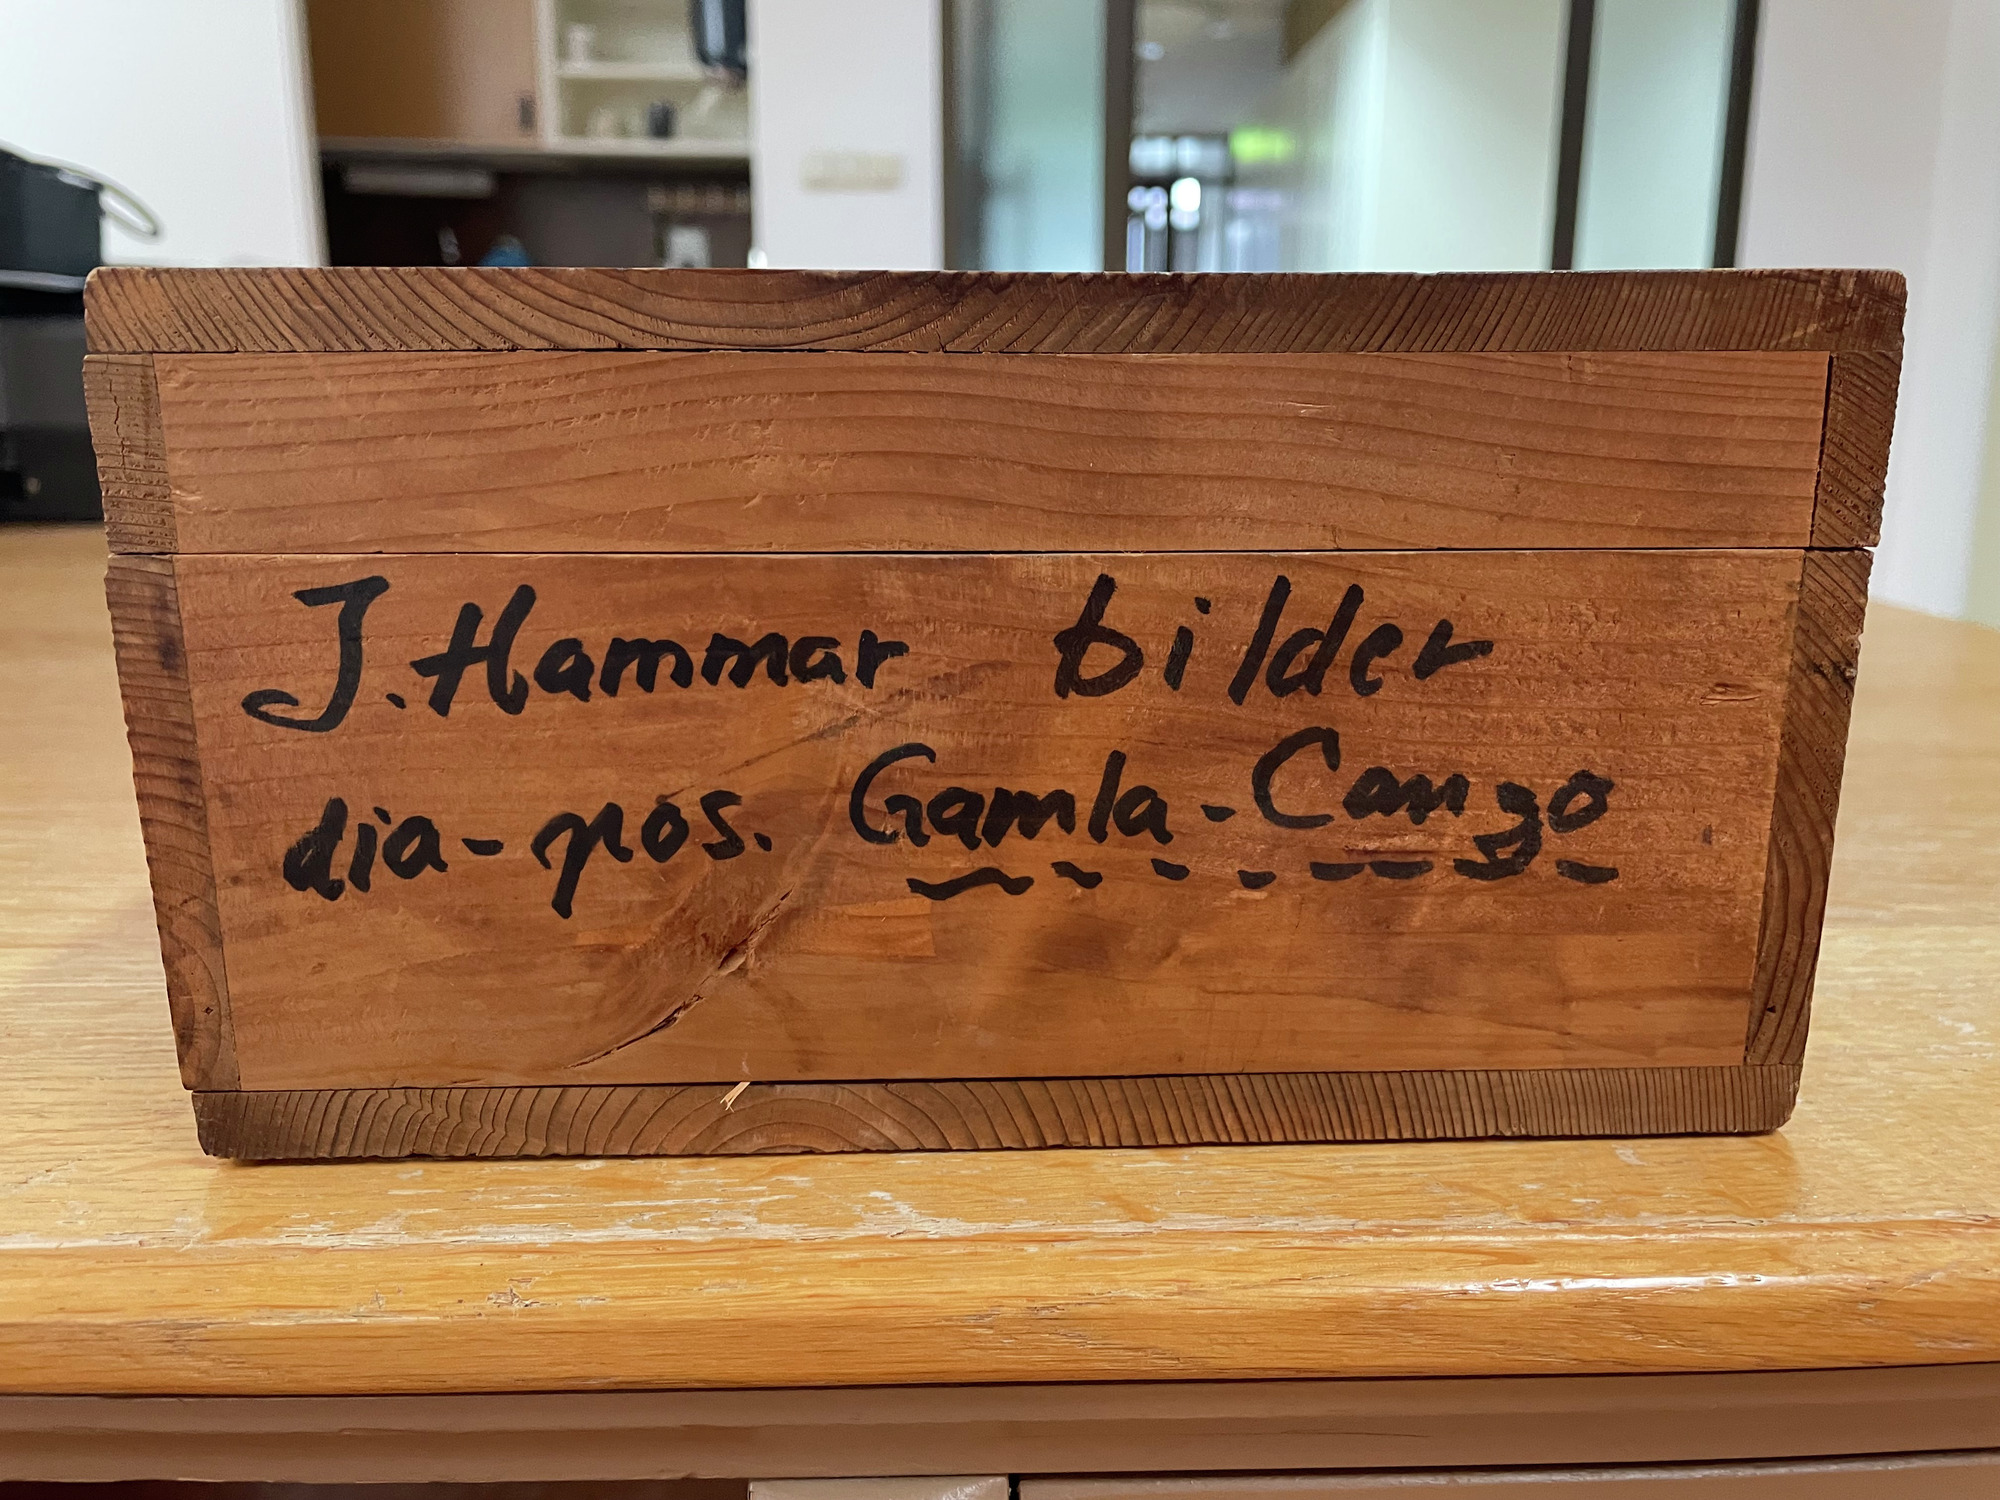 J. Hammar bilder
dia-pos. Gamla-Congo